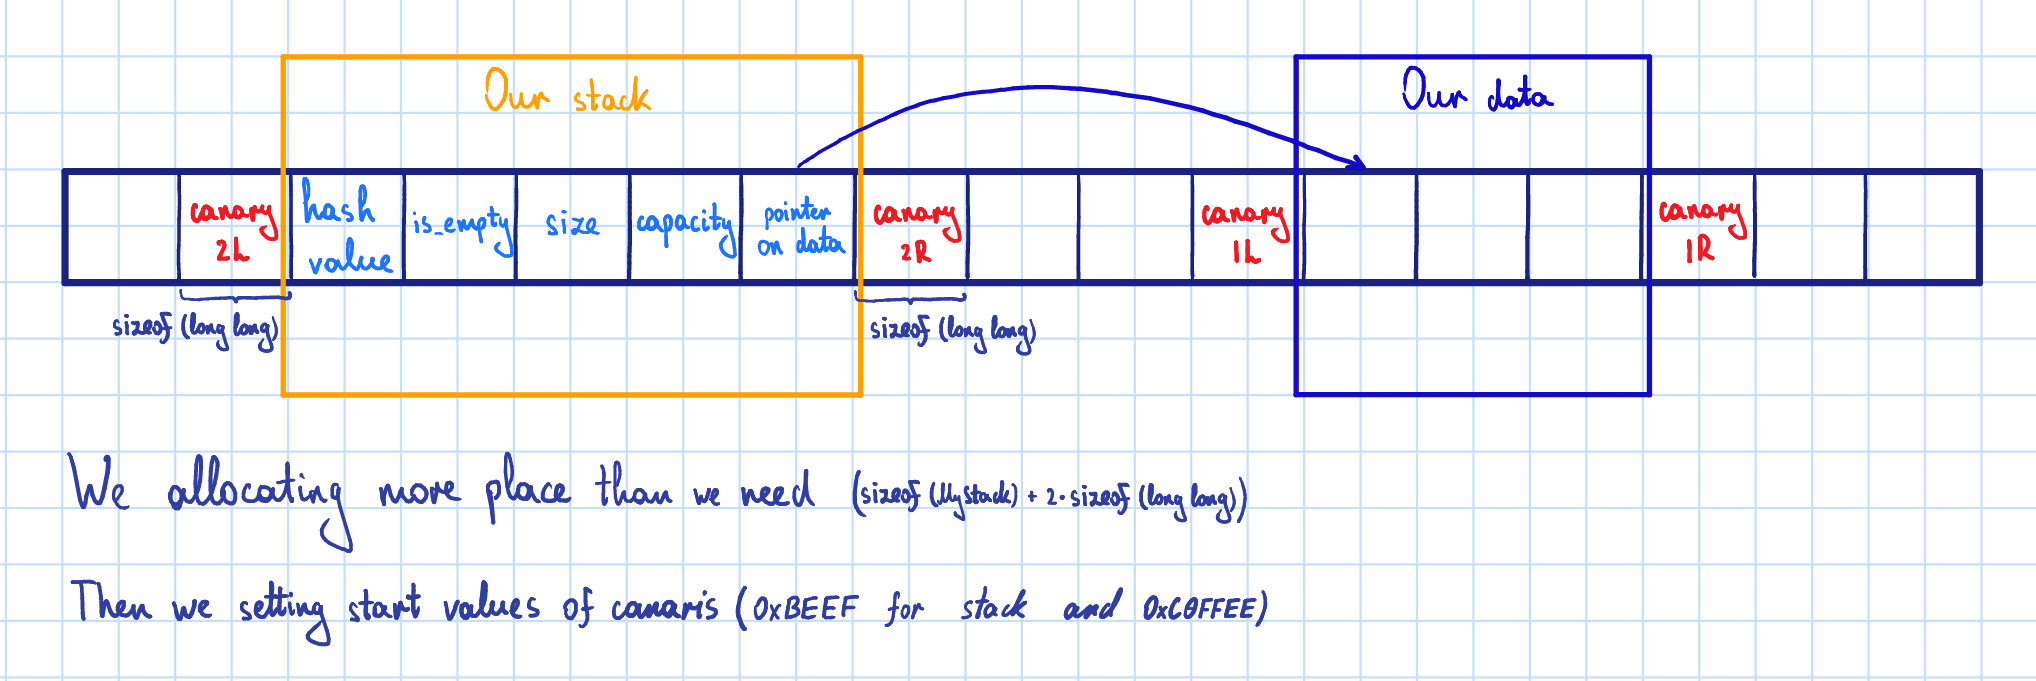 Our stack
Our data
canary
2L
hash
value
is_empty
size
capacity
pointer
on data
canary
2R
canary
1L
canary
1R
sizeof (long long)
sizeof (long long)
We allocating more place than we need (sizeof (My stack) + 2 · sizeof (long long))
Then we setting start values of canaris (0xBEEF for stack and 0xC0FFEE)